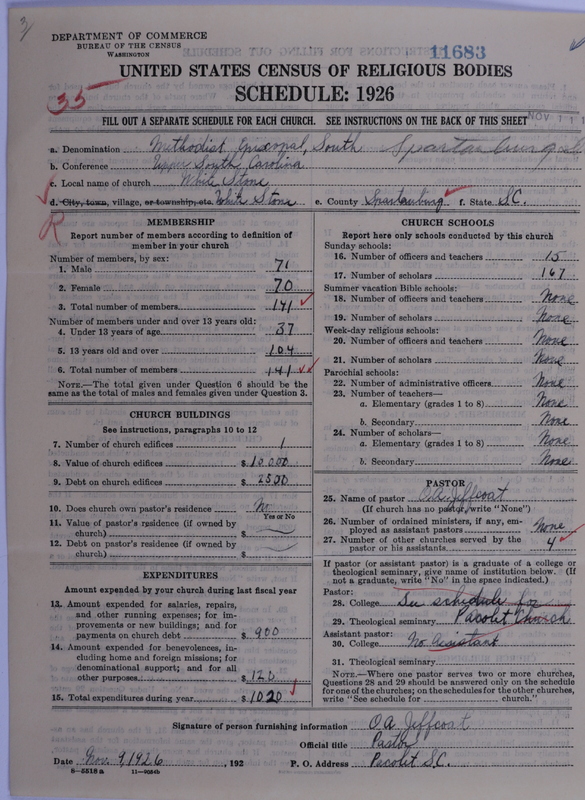 DEPARTMENT OF COMMERCE
BUREAU OF THE CENSUS
WASHINGTON
11683
UNITED STATES CENSUS OF RELIGIOUS BODIES
SCHEDULE: 1926
35
FILL OUT A SEPARATE SCHEDULE FOR EACH CHURCH. SEE INSTRUCTIONS ON THE BACK OF THIS SHEET
NOV 11
a. Denomination Methodist Episcopal, South Spartanburg
b. Conference Upper South Carolina
c. Local name of church White Stone
d. City, town, village, or township, etc. White Stone e. County Spartanburg f. State S.C.
R
MEMBERSHIP
Report number of members according to definition of
member in your church
Number of members, by sex:
1. Male 71
2. Female 70
3. Total number of members 141
Number of members under and over 13 years old:
4. Under 13 years of age 37
5. 13 years old and over 104
6. Total number of members 141
NOTE.—The total given under Question 6 should be the
same as the total of males and females given under Question 3.
CHURCH BUILDINGS
See instructions, paragraphs 10 to 12
7. Number of church edifices 1
8. Value of church edifices $10000
9. Debt on church edifices $2500
10. Does church own pastor's residence No
Yes or No
11. Value of pastor's residence (if owned by
church) $
12. Debt on pastor's residence (if owned by
church) $
EXPENDITURES
Amount expended by your church during last fiscal year
13. Amount expended for salaries, repairs,
and other running expenses; for im-
provements or new buildings; and for
payments on church debt $900
14. Amount expended for benevolences, in-
cluding home and foreign missions; for
denominational support; and for all
other purposes $120
15. Total expenditures during year $1020
CHURCH SCHOOLS
Report here only schools conducted by this church
Sunday schools:
16. Number of officers and teachers 15
17. Number of scholars 167
Summer vacation Bible schools:
18. Number of officers and teachers None
19. Number of scholars None
Week-day religious schools:
20. Number of officers and teachers None
21. Number of scholars None
Parochial schools:
22. Number of administrative officers None
23. Number of teachers—
a. Elementary (grades 1 to 8) None
b. Secondary None
24. Number of scholars—
a. Elementary (grades 1 to 8) None
b. Secondary None
PASTOR
25. Name of pastor O.A. Jeffcoat
(If church has no pastor, write "None")
26. Number of ordained ministers, if any, em-
ployed as assistant pastors None
27. Number of other churches served by the
pastor or his assistants 4
If pastor (or assistant pastor) is a graduate of a college or
theological seminary, give name of institution below. (If
not a graduate, write "No" in the space indicated.)
Pastor:
28. College See schedule for
29. Theological seminary Pacolet Church
Assistant pastor:
30. College No Assistant
31. Theological seminary
NOTE.—Where one pastor serves two or more churches,
Questions 28 and 29 should be answered only on the schedule
for one of the churches; on the schedules for the other churches,
write "See schedule for church."
Signature of person furnishing information O.A. Jeffcoat
Official title Pastor
Date Nov. 9, 1926, 192 P. O. Address Pacolet S.C.
8—5518 a 11—9054b